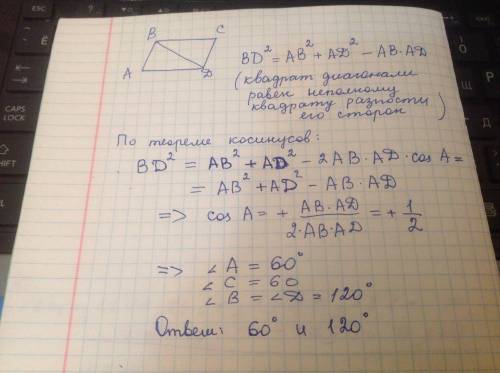 B
C
A
D
BD² = AB² + AD² − AB·AD
(квадрат диагонали
равен неполному
квадрату разности
его сторон)
По теореме косинусов:
BD² = AB² + AD² − 2AB·AD·cos A =
= AB² + AD² − AB·AD
=> cos A = + AB·AD / 2·AB·AD = + 1/2
=> ∠A = 60°
∠C = 60
∠B = ∠D = 120°
Ответ: 60° и 120°
CAPS
LOCK
SHIFT